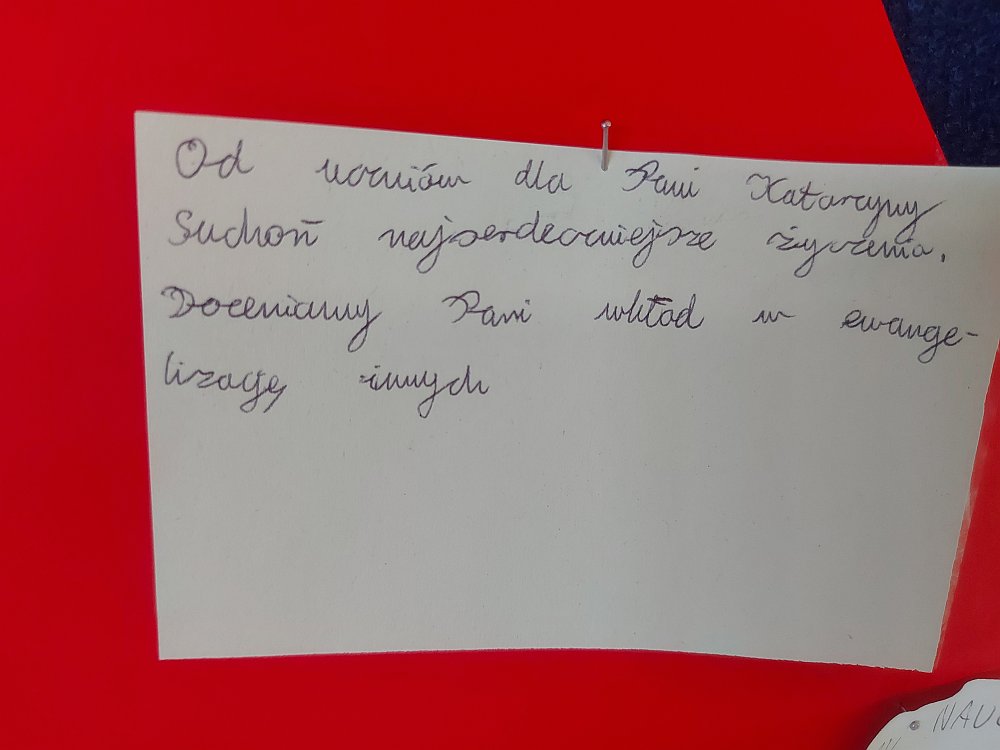 Od uczniów dla Pani Katarzyny
Suchoń najserdeczniejsze życzenia.
Doceniamy Pani wkład w ewange-
lizację innych